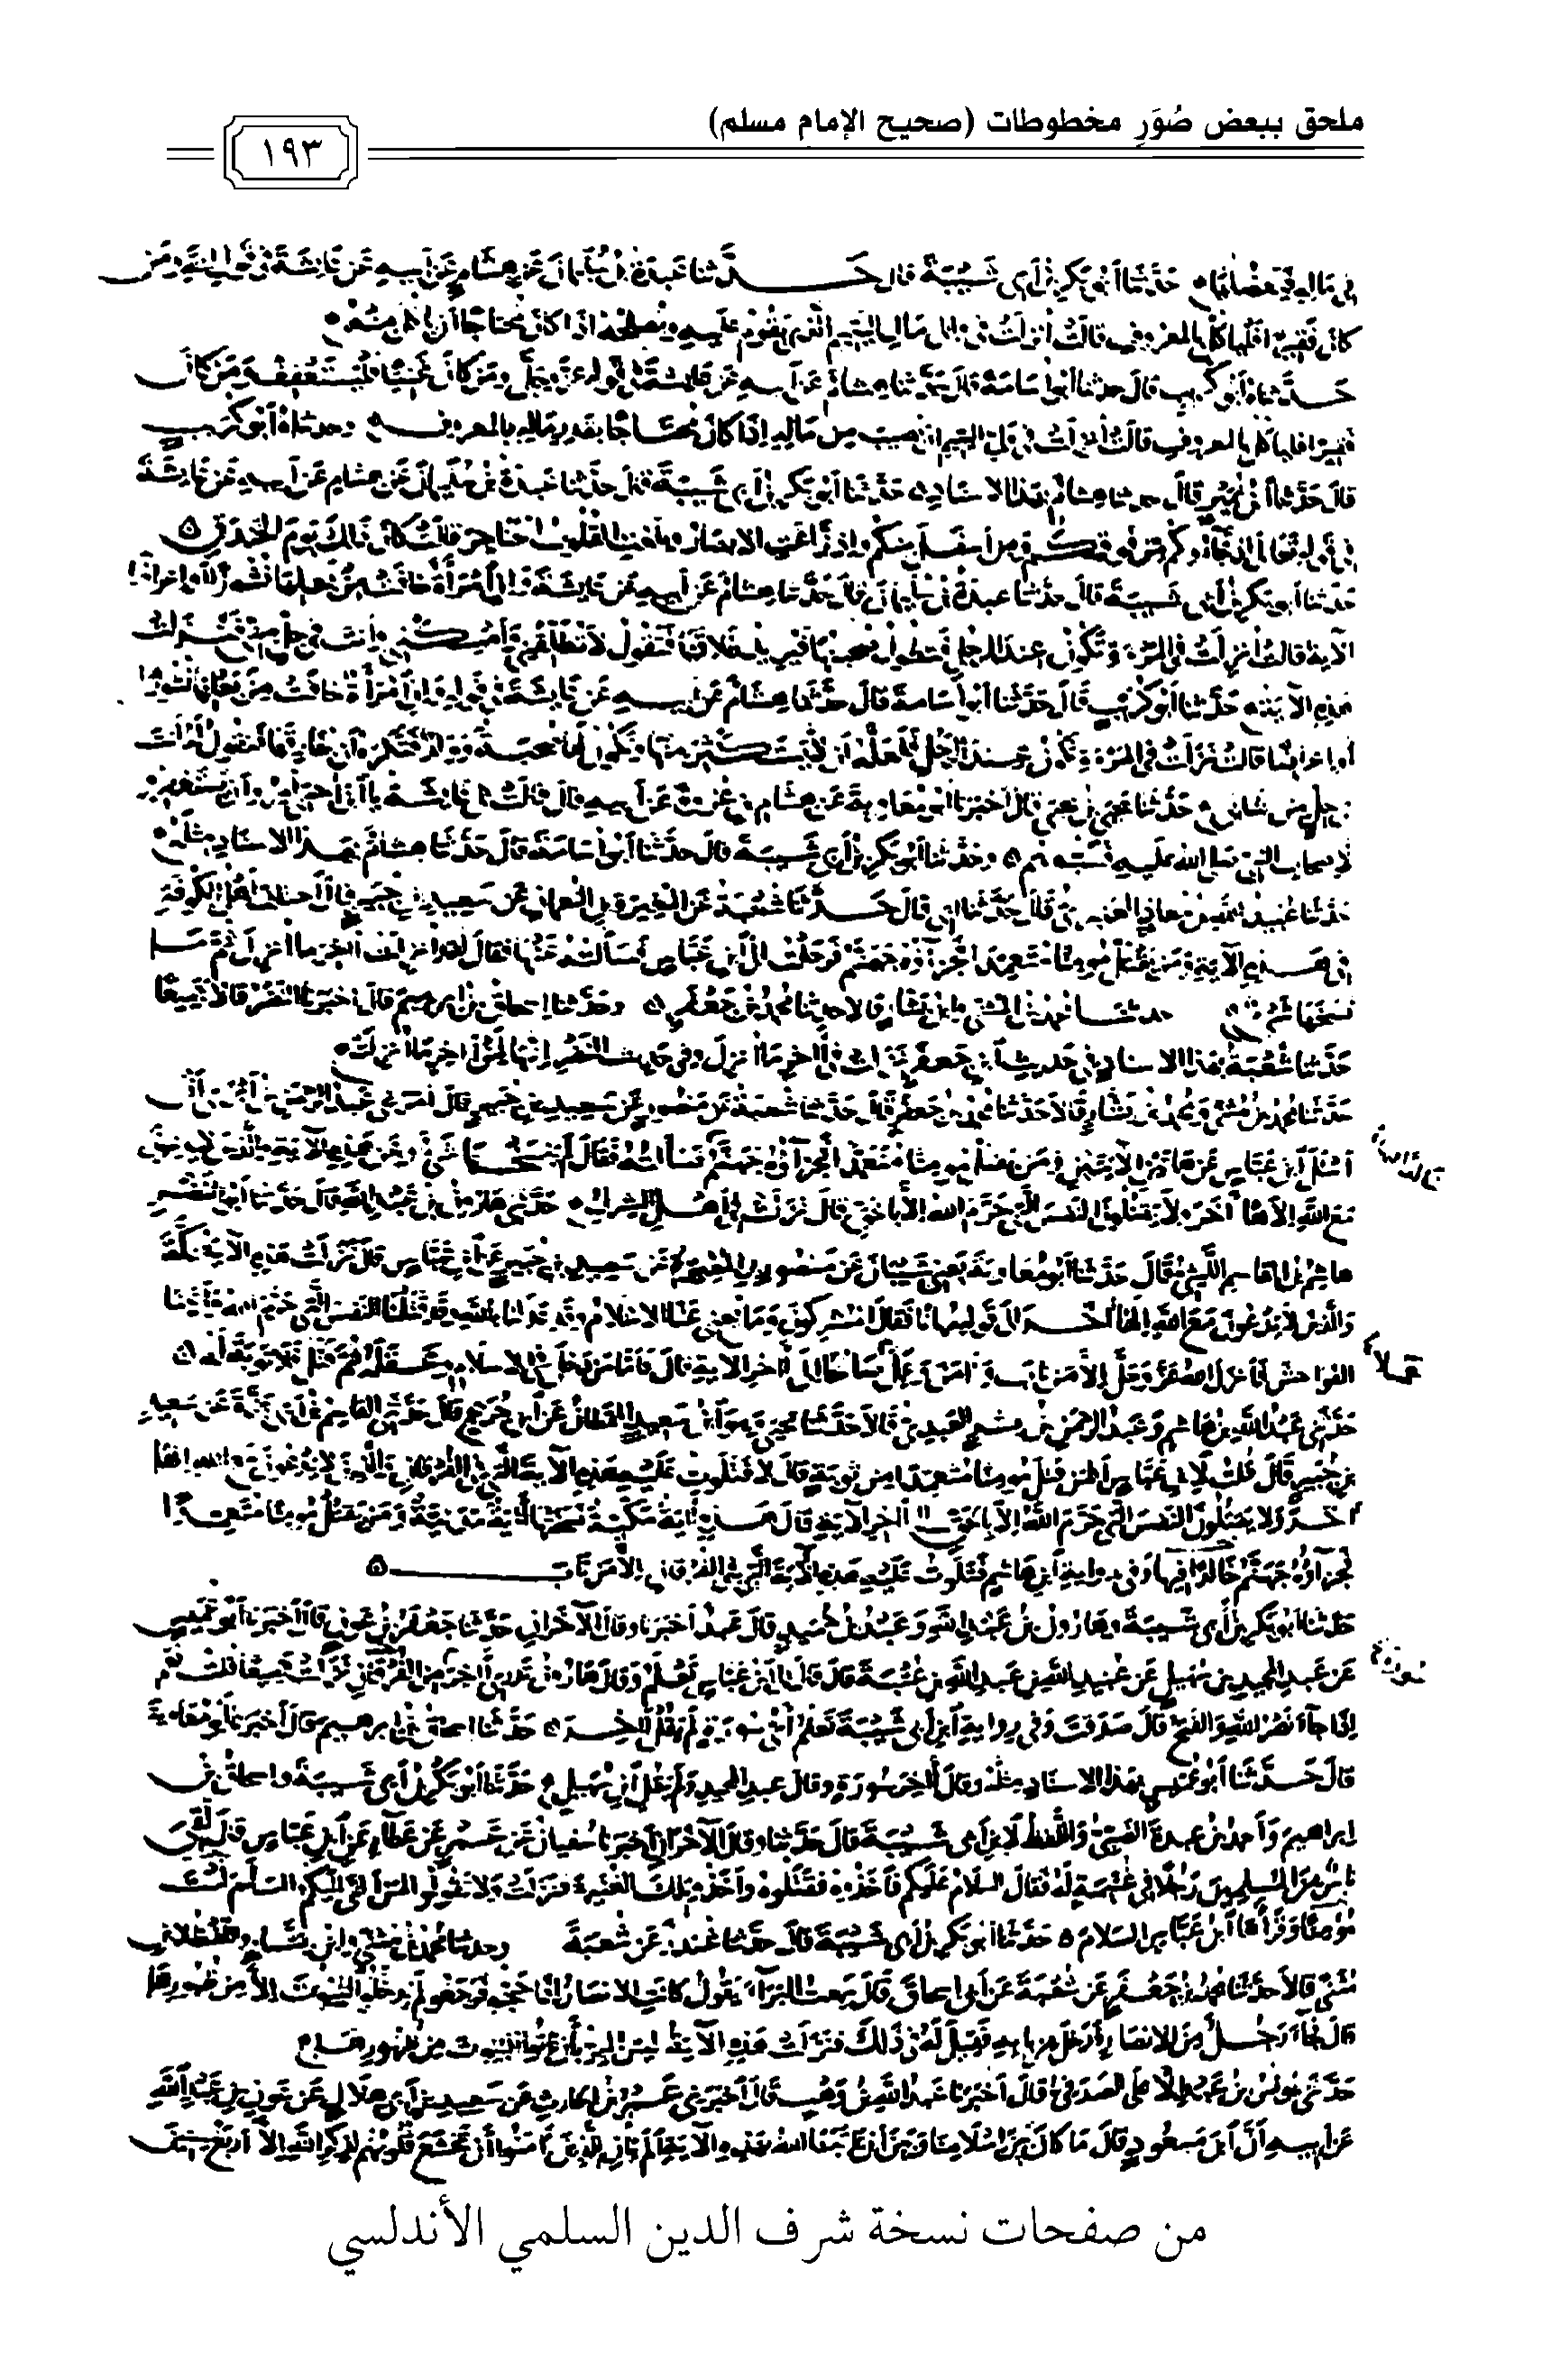 ملحق ببعض صُوَرِ مخطوطات (صحيح الإمام مسلم)
١٩٣
في ماله فيعضلها حَدَّثَنَا أَبُو بَكْرِ بْنُ أَبِي شَيْبَةَ قال حدثنا عَبْدَةُ بْنُ سُلَيْمَانَ عَنْ هِشَامٍ عَنْ أَبِيهِ عَنْ عَائِشَةَ فِي قوله وَمَنْ
كَانَ فَقِيرًا فَلْيَأْكُلْ بِالْمَعْرُوفِ قَالَتْ أُنْزِلَتْ فِي والي مَالِ الْيَتِيمِ الَّذِي يَقُومُ عَلَيْهِ وَيُصْلِحُهُ اذا كَانَ مُحْتَاجًا أَنْ يَأْكُلَ مِنْهُ
حدثناه أَبُو كُرَيْبٍ قال حدثنا أَبُو أُسَامَةَ قال حدثنا هشام عَنْ أَبِيهِ عَنْ عَائِشَةَ في قوله عز وجل وَمَنْ كَانَ غَنِيًّا فَلْيَسْتَعْفِفْ وَمَنْ كَانَ
فقيرا فلياكل بالمعروف قالت أنزلت في ولي اليتيم ان يصيب مِنْ مَالِهِ إِذَا كَانَ محتاجا بقدر ماله بالمعروف وحدثناه أَبُو كريب
قال حَدَّثَنَا ابن نُمَيْرٍ قال حدثنا هشام بهذا الاسناد حَدَّثَنَا أَبُو بَكْرِ بْنُ أَبِي شَيْبَةَ قال حدثنا عَبْدَةُ بْنُ سُلَيْمَانَ عن هشام عن أبيه عَنْ عَائِشَةَ
في قوله تعالى إذ جاؤوكم من فوقكم ومن أسفل منكم وإذ زاغت الابصار وبلغت القلوب الحناجر قالت كان ذلك يَوْمَ الْخَنْدَقِ
حدثنا أبو بكر بن أبي شيبة قال حدثنا عبدة بن سليمان قال حدثنا هشام عن أبيه عن عايشة وان امرأة خافت من بعلها نشوزا أو اعراضا
الآية قالت انزلت في المرءة تكون عند الرجل فتطول صحبتها فيريد طلاقها فتقول لا تطلقني وأمسكني وأنت في حل مني فنزلت
هذه الاية حدثنا أبو كريب قال حدثنا أبو أسامة قال حدثنا هشام عن أبيه عن عايشة في قوله وان امرأة خافت من بعلها نشوزا
أو اعراضا قالت نزلت في المرءة تكون عند الرجل فلعله أن لا يستكثر منها وتكون لها صحبة وولد فتكره أن يفارقها فتقول له أنت
في حل من شاني حدثنا يحيى بن يحيى قال أخبرنا أبو معاوية عن هشام بن عروة عن أبيه قال قالت لي عايشة يا ابن اختي امروا أن يستغفروا
لاصحاب النبي صلى الله عليه فسبوهم وحدثنا أبو بكر بن أبي شيبة قال حدثنا أبو أسامة قال حدثنا هشام بهذا الاسناد مثله
حدثنا عبيد الله بن معاذ العنبري قال حدثنا ابي قال حدثنا شعبة عن المغيرة بن النعمان عن سعيد بن جبير قال اختلف أهل الكوفة
في هذه الآية ومن يقتل مومنا متعمدا فجزآؤه جهنم فرحلت الى ابن عباس فسألته عنها فقال لقد انزلت آخر ما أنزل ثم ما
نسخها شيء حدثنا محمد بن المثنى وابن بشار قالا حدثنا محمد بن جعفر وحدثنا إسحاق بن ابرهيم قال اخبرنا النضر قالا جميعا
حدثنا شعبة بهذا الاسناد في حديث ابن جعفر نزلت في آخر ما أنزل وفي حديث النضر إنها لمن آخر ما أنزلت
حدثنا محمد بن مثنى ومحمد بن بشار قالا حدثنا محمد بن جعفر قال حدثنا شعبة عن منصور عن سعيد بن جبير قال امرني عبد الرحمن بن أبزى أن
أسئل ابن عباس عن هاتين الآيتين ومن يقتل مومنا متعمدا فجزآؤه جهنم فسألته فقال لم ينسخها شيء وعن هذه الآية والذين لا يدعون
مع الله إلاها آخر ولا يقتلون النفس التي حرم الله الا بالحق قال نزلت في أهل الشرك حدثني هارون بن عبد الله قال حدثنا أبو النضر
هاشم بن القاسم الليثي قال حدثنا أبو معاوية يعني شيبان عن منصور بن المعتمر عن سعيد بن جبير عن ابن عباس قال نزلت هذه الآية بمكة
والذين لا يدعون مع الله إلها آخر الى قوله مهانا فقال المشركون وما يغني عنا الاسلام وقد عدلنا بالله وقد قتلنا النفس التي حرم الله وأتينا
الفواحش فأنزل الله عز وجل إلا من تاب وآمن وعمل صالحا إلى آخر الاية قال فأما من دخل في الاسلام وعقله ثم قتل فلا توبة له
حدثني عبد الله بن هاشم وعبد الرحمن بن بشر العبدي قالا حدثنا يحيى وهو ابن سعيد القطان عن ابن جريج قال حدثني القاسم بن أبي بزة عن سعيد
بن جبير قال قلت لابن عباس ألمن قتل مومنا متعمدا من توبة قال لا فتلوت عليه هذه الآية التي في الفرقان والذين لا يدعون مع الله إلها
آخر ولا يقتلون النفس التي حرم الله إلا بالحق الى آخر الآية قال هذه آية مكية نسختها آية مدنية ومن يقتل مومنا متعمدا
فجزآؤه جهنم خالدا فيها وفي رواية ابن هاشم فتلوت عليه هذه الآية التي في الفرقان إلا من تاب
حدثنا أبو بكر بن أبي شيبة وهارون بن عبد الله وعبد بن حميد قال عبد أخبرنا وقال الآخران حدثنا جعفر بن عون قال أخبرنا أبو عميس
عن عبد المجيد بن سهيل عن عبيد الله بن عبد الله بن عتبة قال قال لي ابن عباس تعلم وقال هارون تدري آخر من القرآن نزلت جميعا قلت نعم
إذا جآء نصر الله والفتح قال صدقت وفي رواية ابن أبي شيبة تعلم أي سورة ولم يقل آخر حدثنا اسحاق بن ابرهيم قال أخبرنا أبو معاوية
قال حدثنا أبو عميس بهذا الاسناد مثله وقال آخر سورة وقال عبد المجيد ولم يقل ابن سهيل حدثنا أبو بكر بن أبي شيبة واسحاق بن
ابراهيم وأحمد بن عبدة الضبي واللفظ لابن أبي شيبة قال حدثنا وقال الآخران أخبرنا سفيان عن عمرو عن عطاء عن ابن عباس قال لقي
ناس من المسلمين رجلا في غنيمة له فقال السلام عليكم فأخذوه فقتلوه وأخذوا تلك الغنيمة فنزلت ولا تقولوا لمن ألقى إليكم السلم لست
مؤمنا وقرأها ابن عباس السلام حدثنا أبو بكر بن أبي شيبة قال حدثنا غندر عن شعبة وحدثنا محمد بن مثنى وابن بشار واللفظ لابن
مثنى قالا حدثنا محمد بن جعفر عن شعبة عن أبي اسحاق قال سمعت البرآء يقول كانت الانصار إذا حجوا فرجعوا لم يدخلوا البيوت إلا من ظهورها
قال فجآء رجل من الانصار فدخل من بابه فقيل له في ذلك فنزلت هذه الآية ليس البر بأن تأتوا البيوت من ظهورها
حدثني يونس بن عبد الاعلى الصدفي قال أخبرنا عبد الله بن وهب قال أخبرني عمرو بن الحارث عن سعيد بن أبي هلال عن عون بن عبد الله
عن أبيه أن ابن مسعود قال ما كان بين اسلامنا وبين أن عاتبنا الله بهذه الآية ألم يأن للذين آمنوا أن تخشع قلوبهم لذكر الله إلا أربع سنين
من صفحات نسخة شرف الدين السلمي الأندلسي